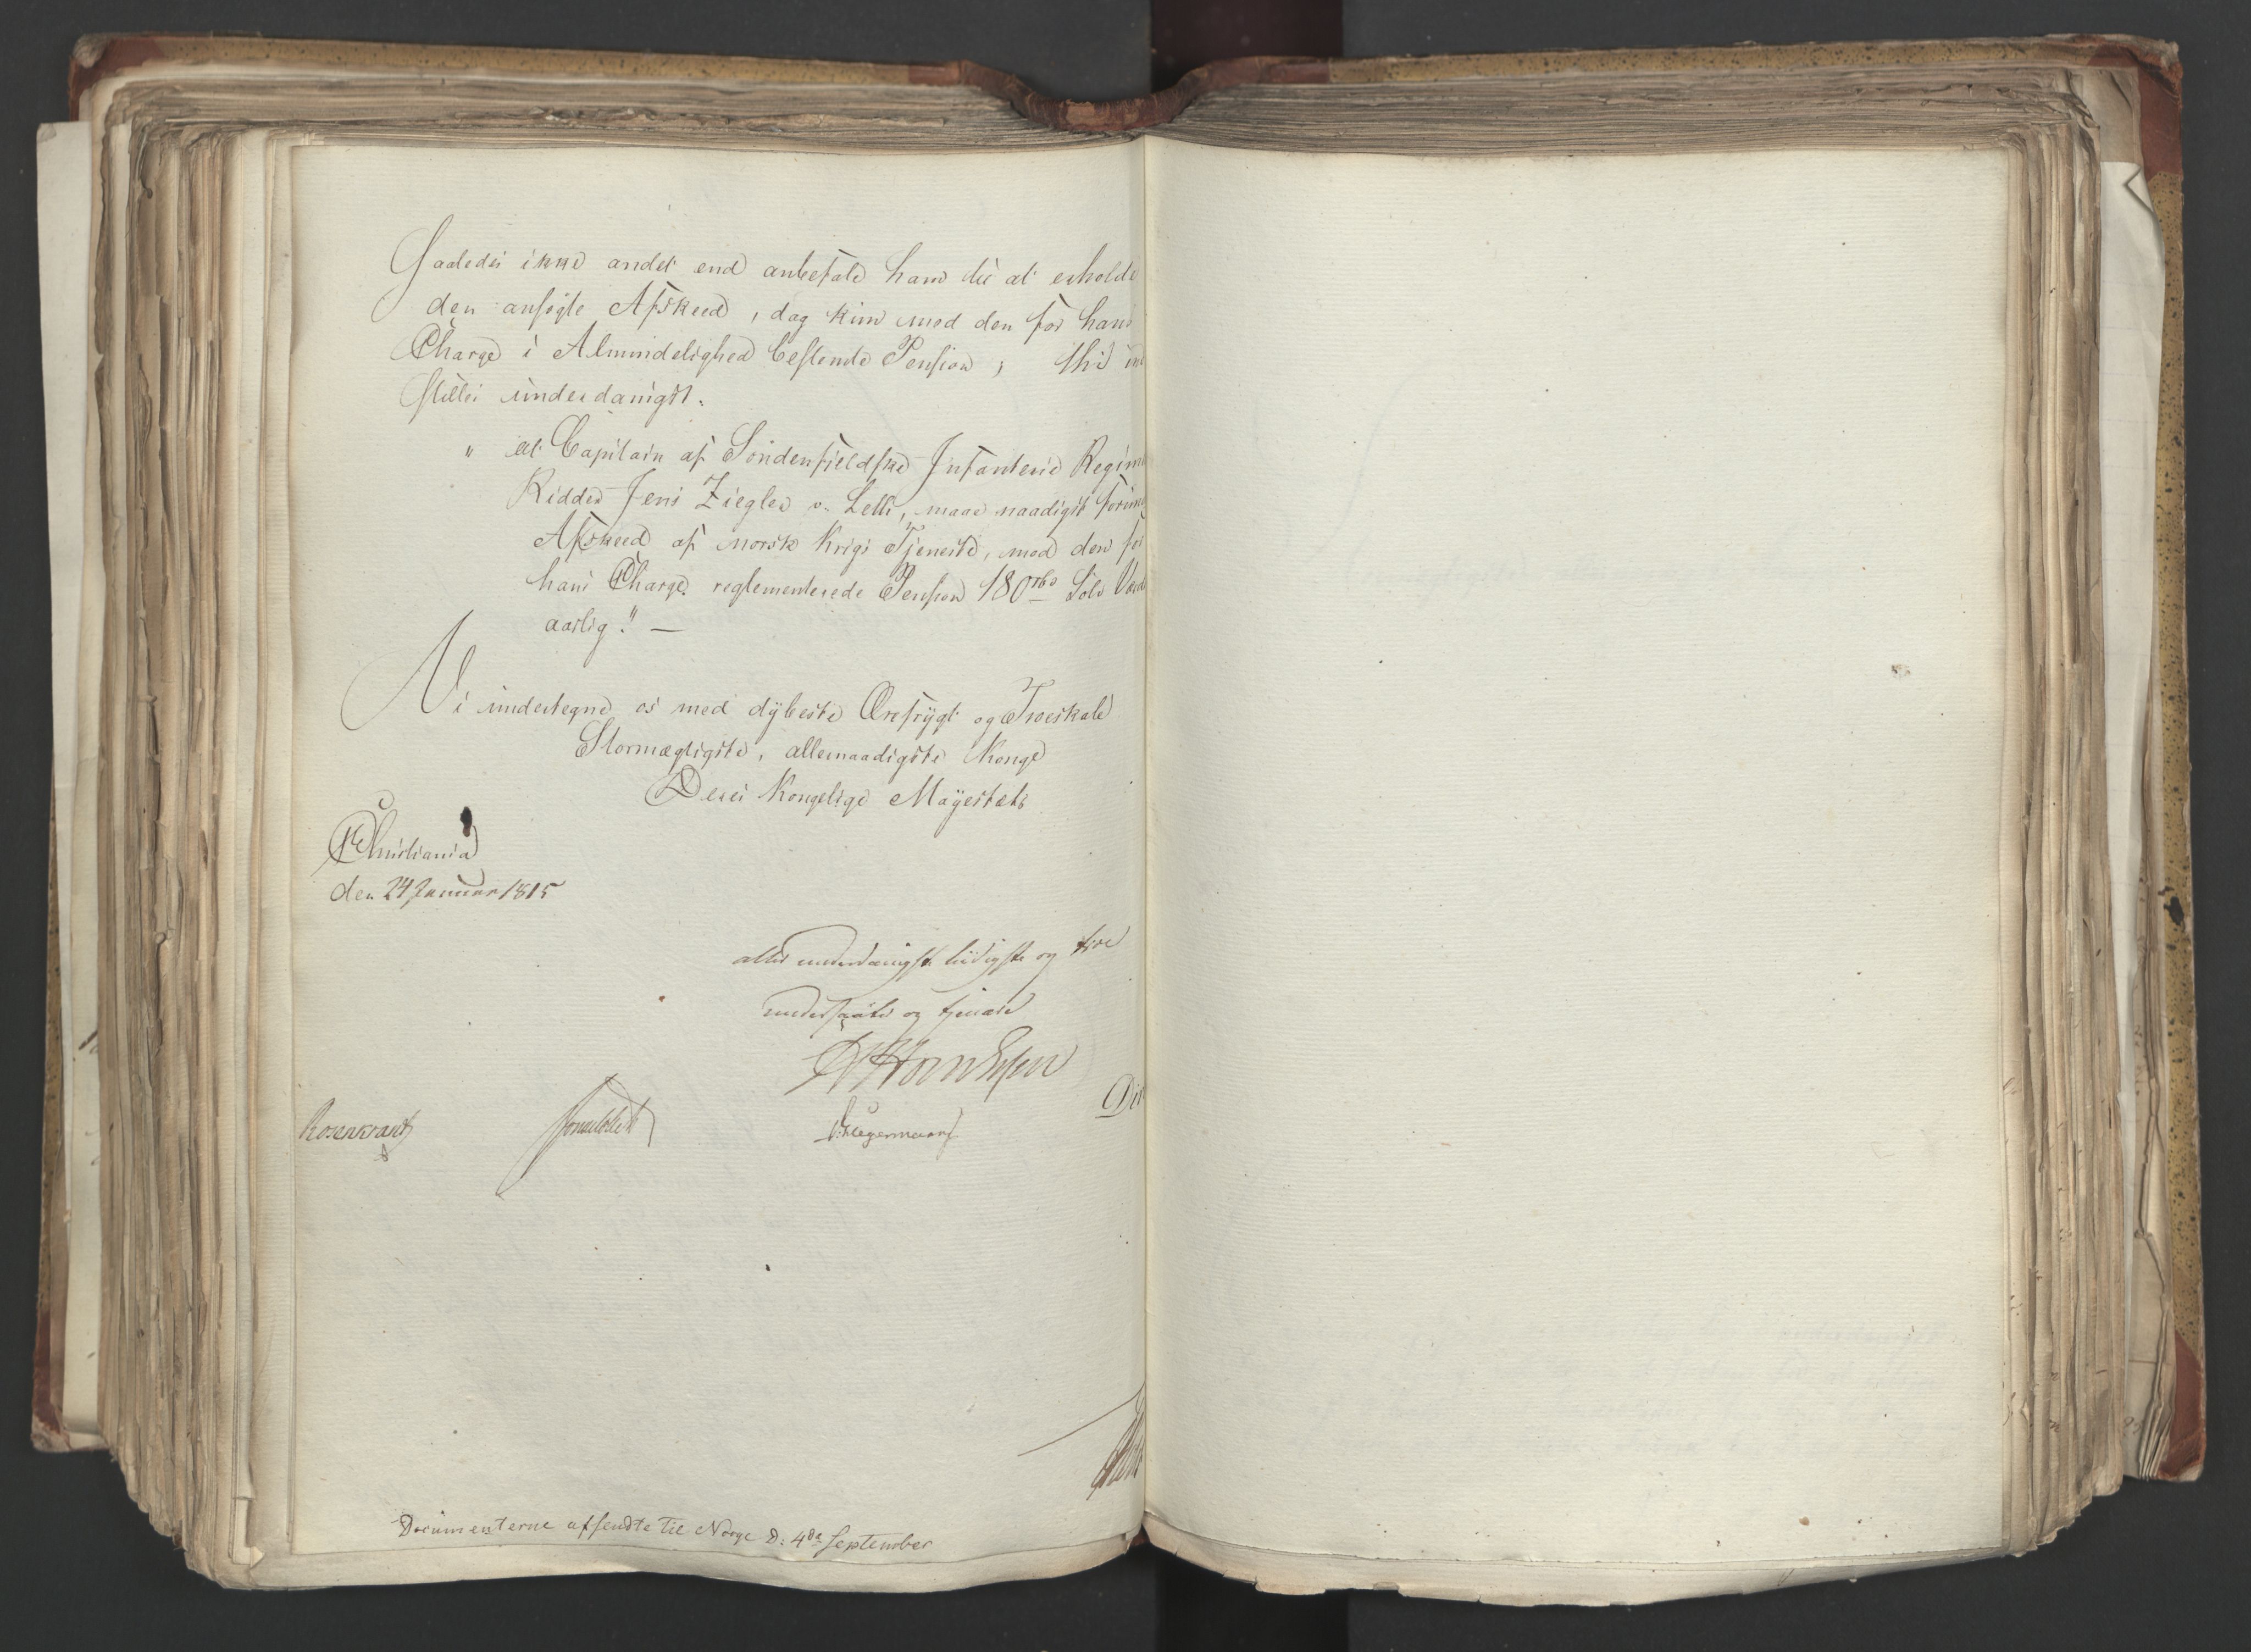 Saaledes ikke andet end anbefale ham til at erholde
den ansøgte Afskeed, dog kun mod den for hans
Charge i Almindelighed bestemte Pension, thi ind
stilles underdanigst:
" at Capitain af Søndenfieldske Infanterie Regim
Ridder Jens Ziegler v. maae naadigst forun
Afskeed af norsk Krigs Tjeneste, mod den for
hans Charge reglementerede Pension 180 rbd Sölv Værd
aarlig." —
Vi undertegne os med dybeste Ærefrygt og Troeskab
Stormægtigste, allernaadigste Konge
Deres Kongelige Mayestæts
Christiania
den 24 Januar 1815
aller underdanigste lÿdigste og troe
undersaatte og tjenere
Rosenkrantz Sommerfeldt Hegermann
Documenterne afsendte til Norge D: 4de September